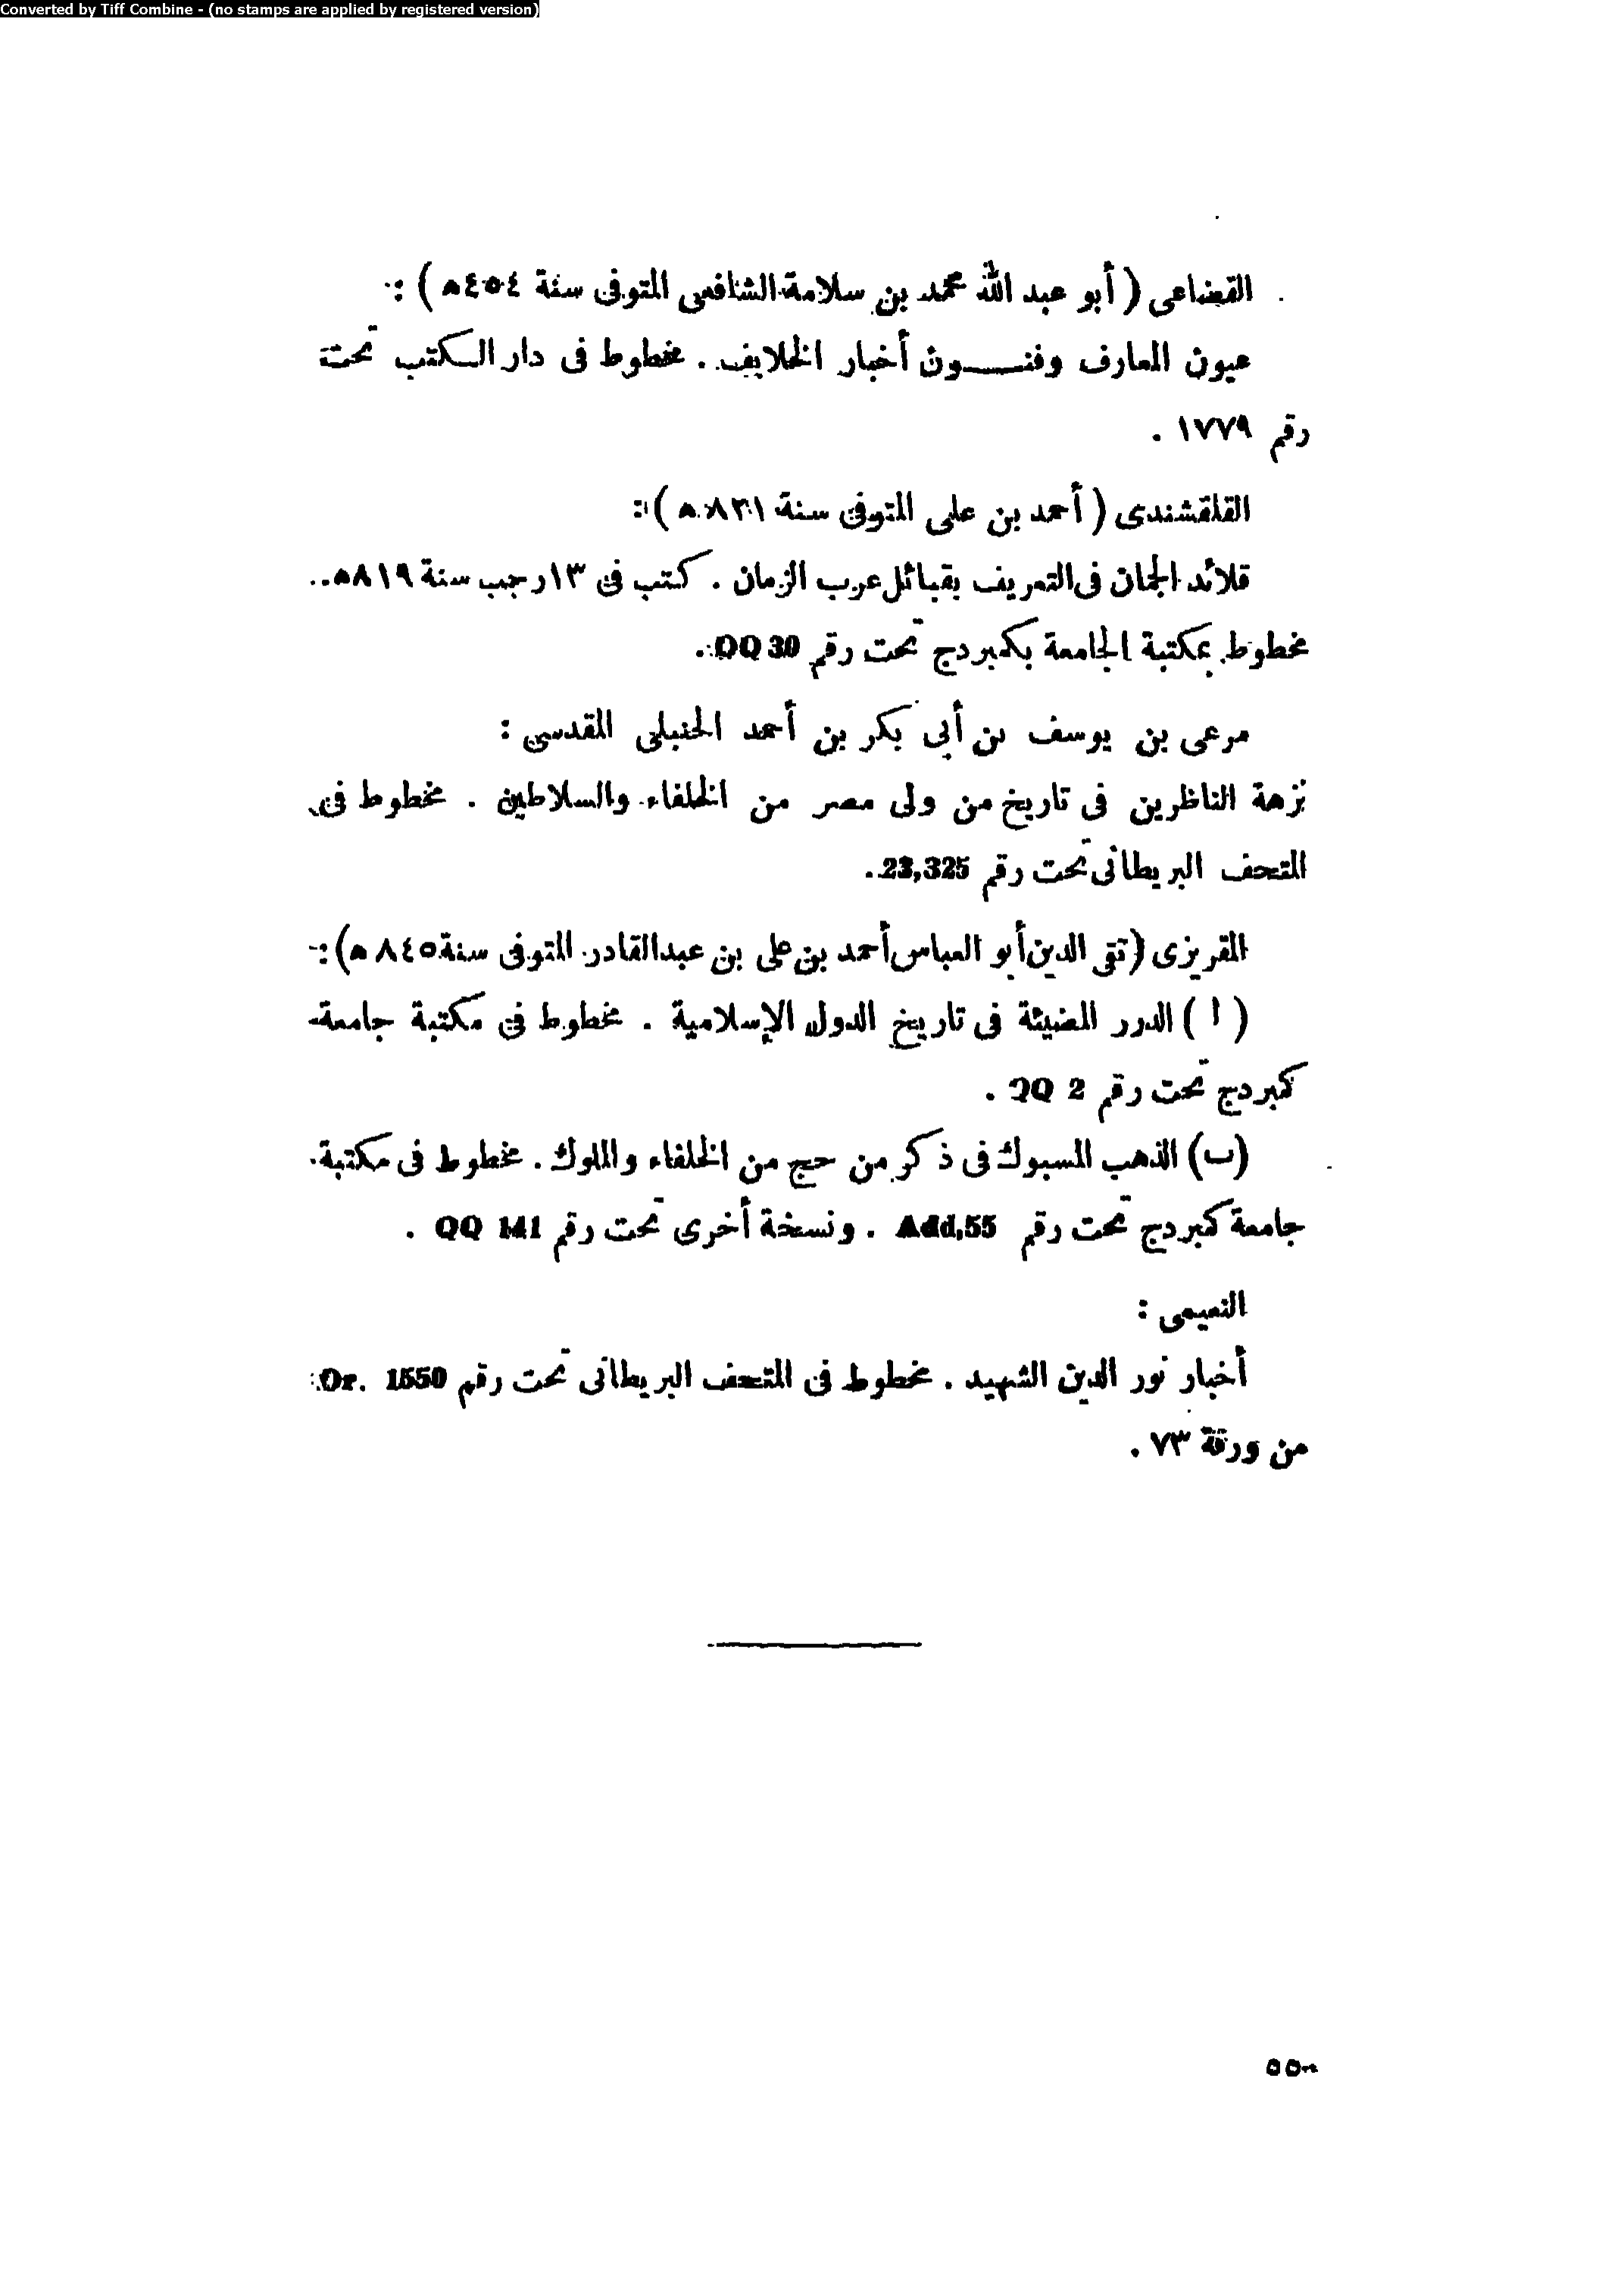 Converted by Tiff Combine - (no stamps are applied by registered version)
القضاعى ( أبو عبد الله محمد بن سلامة الشافعى المتوفى سنة ٤٥٤ه ) :
عيون المعارف وفنون أخبار الخلايف . مخطوط فى دار الكتب تحت
رقم ١٧٧٩ .
القلقشندى ( أحمد بن على المتوفى سنة ٨٢١ ه ) :
قلائد الجمان فى التعريف بقبائل عرب الزمان . كتب فى ١٣ رجب سنة ٨١٩ه .
مخطوط بمكتبة الجامعة بكمبردج تحت رقم QQ 30 .
مرعى بن يوسف بن أبى بكر بن أحمد الحنبلى المقدسى :
نزهة الناظرين فى تاريخ من ولى مصر من الخلفاء والسلاطين . مخطوط فى
المتحف البريطانى تحت رقم 23,325 .
المقريزى (تقى الدين أبو العباس أحمد بن على بن عبد القادر المتوفى سنة ٨٤٥ ه) :
( ا ) الدرر المضيئة فى تاريخ الدول الإسلامية . مخطوط فى مكتبة جامعة
كمبردج تحت رقم QQ 2 .
(ب) الذهب المسبوك فى ذكر من حج من الخلفاء والملوك . مخطوط فى مكتبة
جامعة كمبردج تحت رقم Add,55 . ونسخة أخرى تحت رقم QQ 141 .
النعيمى :
أخبار نور الدين الشهيد . مخطوط فى المتحف البريطانى تحت رقم Or. 1550
من ورقة ٧٣ .